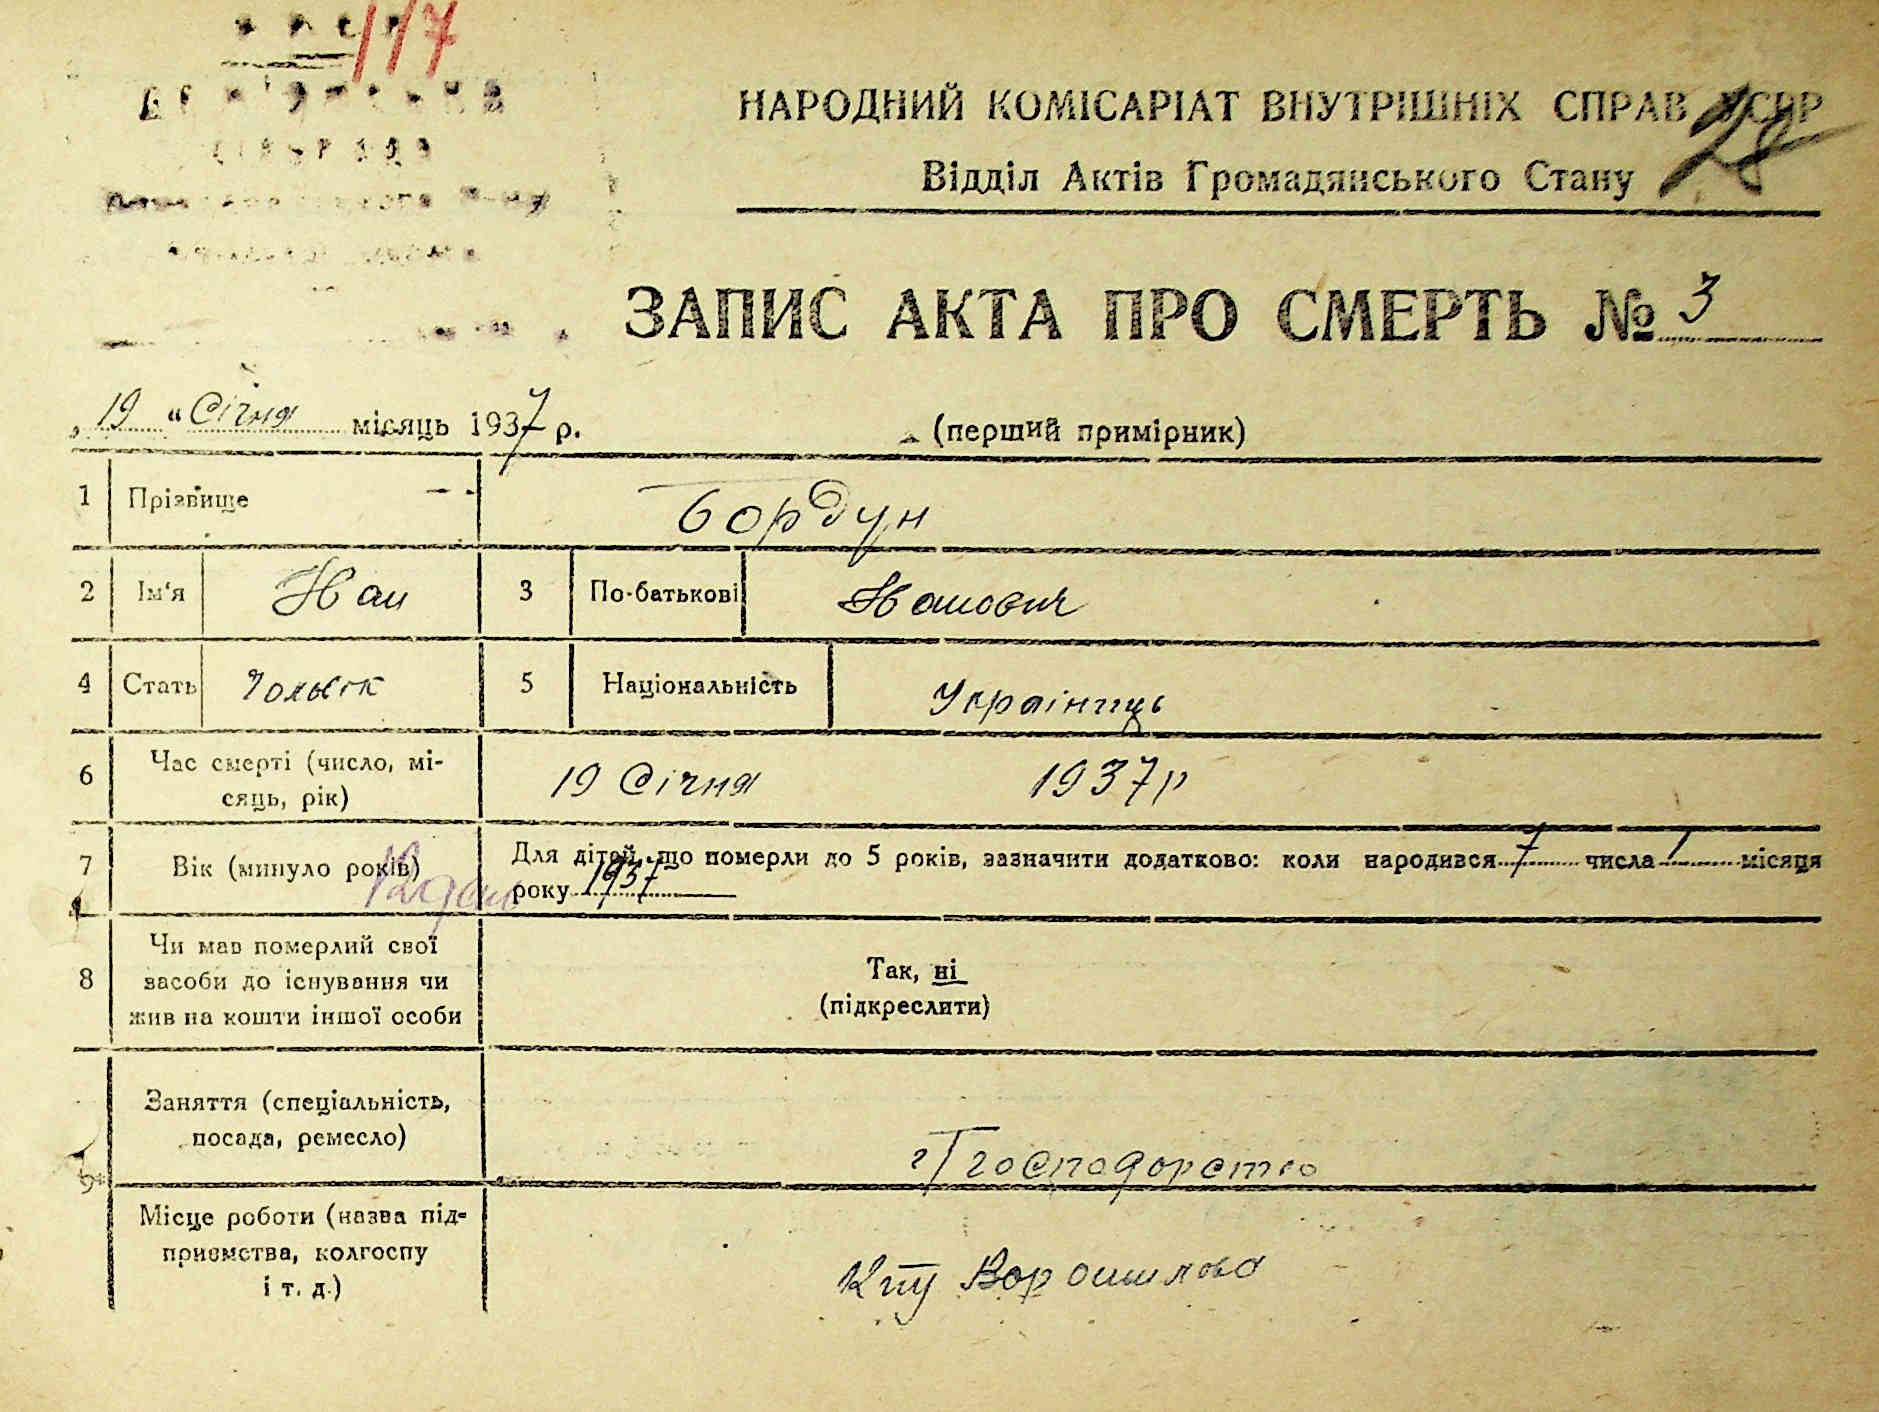 117
НАРОДНИЙ КОМІСАРІАТ ВНУТРІШНІХ СПРАВ УСРР
28
Відділ Актів Громадянського Стану
ЗАПИС АКТА ПРО СМЕРТЬ № 3
„19“ Січня місяць 1937 р.
(перший примірник)
1 Прізвище Бордун
2 Ім'я Іван 3 По-батькові Іванович
4 Стать 5 Національність Українець
6 Час смерті (число, мі-
сяць, рік) 19 Січня 1937 р
7 Вік (минуло років) 12 Для дітей, що померли до 5 років, зазначити додатково: коли народився 7 числа 1 місяця
року 1937
8 Чи мав померлий свої
засоби до існування чи
жив на кошти іншої особи
Так, ні
(підкреслити)
9 Заняття (спеціальність,
посада, ремесло)
Місце роботи (назва під-
приємства, колгоспу
і т. д.)
Ворошилова